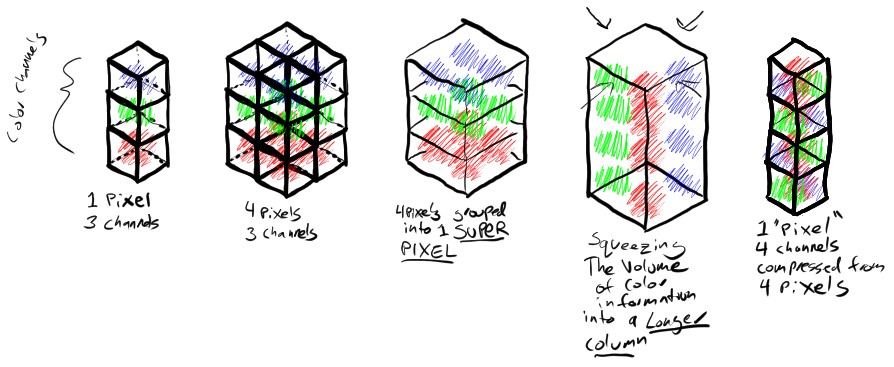 Color Channels
1 Pixel
3 channels
4 Pixels
3 channels
4Pixels grouped
into 1 SUPER
PIXEL
Squeezing
The Volume
of Color
information
into a Longer
column
1 "Pixel"
4 channels
compressed from
4 Pixels